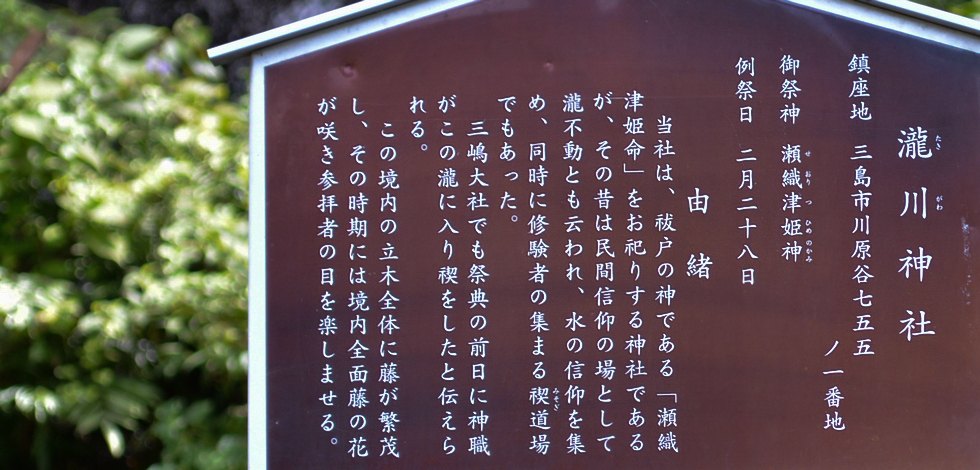 瀧川神社
鎮座地 三島市川原谷七五五
ノ一番地
御祭神 瀬織津姫神
例祭日 二月二十八日
由緒
当社は、祓戸の神である「瀬織
津姫命」をお祀りする神社である
が、その昔は民間信仰の場として
瀧不動とも云われ、水の信仰を集
め、同時に修験者の集まる禊道場
でもあった。
三嶋大社でも祭典の前日に神職
がこの瀧に入り禊をしたと伝えら
れる。
この境内の立木全体に藤が繁茂
し、その時期には境内全面藤の花
が咲き参拝者の目を楽しませる。